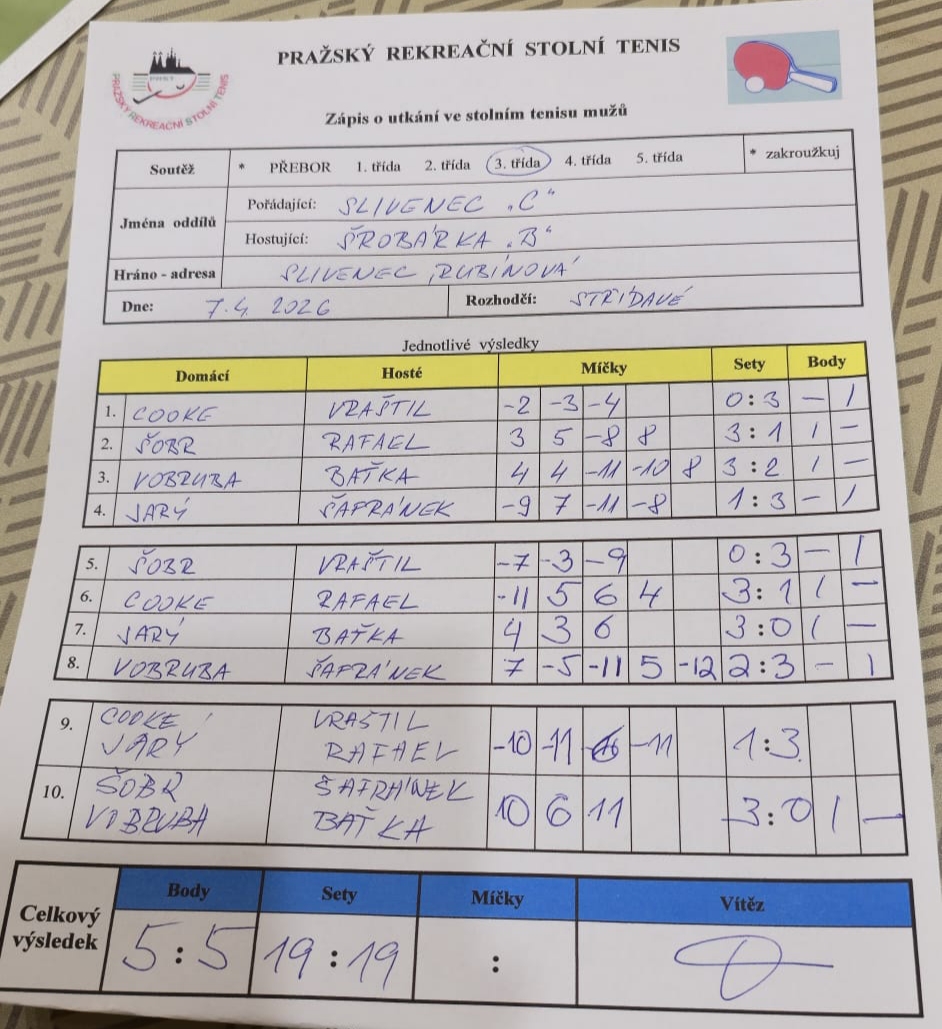 PRAŽSKÝ REKREAČNÍ STOLNÍ TENIS
PRAŽSKÝ REKREAČNÍ STOLNÍ TENIS
Zápis o utkání ve stolním tenisu mužů
Soutěž * PŘEBOR 1. třída 2. třída 3. třída 4. třída 5. třída * zakroužkuj
Jména oddílů
Pořádající: SLIVENEC „C"
Hostující: ŠROBÁRKA „B"
Hráno - adresa SLIVENEC, RUBÍNOVÁ
Dne: 7.4. 2026 Rozhodčí: STŘÍDAVÉ
Jednotlivé výsledky
Domácí Hosté Míčky Sety Body
1. COOKE VRAŠTIL -2 -3 -4 0:3 – 1
2. ŠOBR RAFAEL 3 5 -8 8 3:1 1 –
3. VOBRUBA BAŤKA 4 4 -11 -10 8 3:2 1 –
4. JARÝ ŠAFRÁNEK -9 7 -11 -8 1:3 – 1
5. ŠOBR VRAŠTIL -7 -3 -9 0:3 – 1
6. COOKE RAFAEL -11 5 6 4 3:1 1 –
7. JARÝ BAŤKA 4 3 6 3:0 1 –
8. VOBRUBA ŠAFRÁNEK 7 -5 -11 5 -12 2:3 – 1
9. COOKE VRAŠTIL
JARÝ RAFAEL -10 -11 -11 1:3
10. ŠOBR ŠAFRÁNEK
VOBRUBA BAŤKA 10 6 11 3:0 1 –
Body Sety Míčky Vítěz
Celkový výsledek 5:5 19:19 :